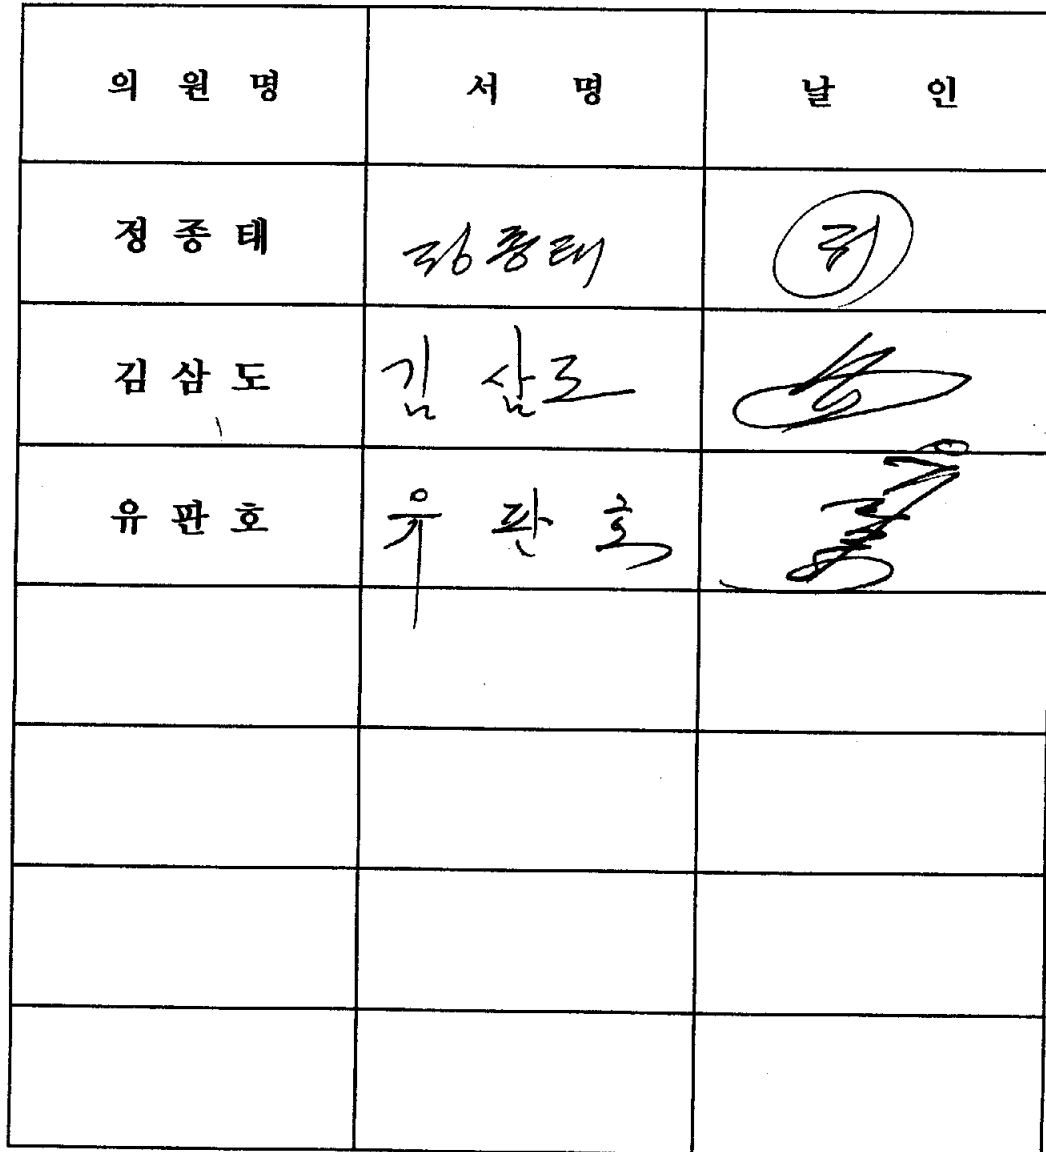 의 원 명 서 명 날 인
정 종 태 정종태
김 삼 도 김 삼도
유 판 호 유 판 호